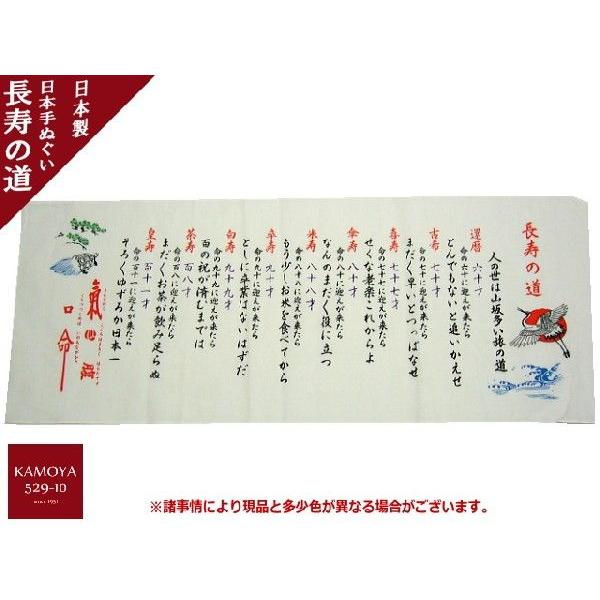 日本製
日本手ぬぐい
長寿の道
長寿の道
人の世は山坂多い旅の道
還暦 六十才
命の六十に迎えが来たら
とんでもないと追いかえせ
古寿 七十才
命の七十に迎えが来たら
まだまだ早いとつっぱなせ
喜寿 七十七才
命の七十七に迎えが来たら
せくな老楽これからよ
傘寿 八十才
命の八十に迎えが来たら
なんのまだまだ役に立つ
米寿 八十八才
命の八十八に迎えが来たら
もう少しお米を食べてから
卒寿 九十才
命の九十に迎えが来たら
としに卒業はないはずだ
白寿 九十九才
命の九十九に迎えが来たら
百の祝が済むまでは
茶寿 百八才
命の百八に迎えが来たら
まだまだお茶が飲み足らぬ
皇寿 百十一才
命の百十一に迎えが来たら
そろそろゆずろか日本一
KAMOYA
529-10
SINCE 1951
※諸事情により現品と多少色が異なる場合がございます。